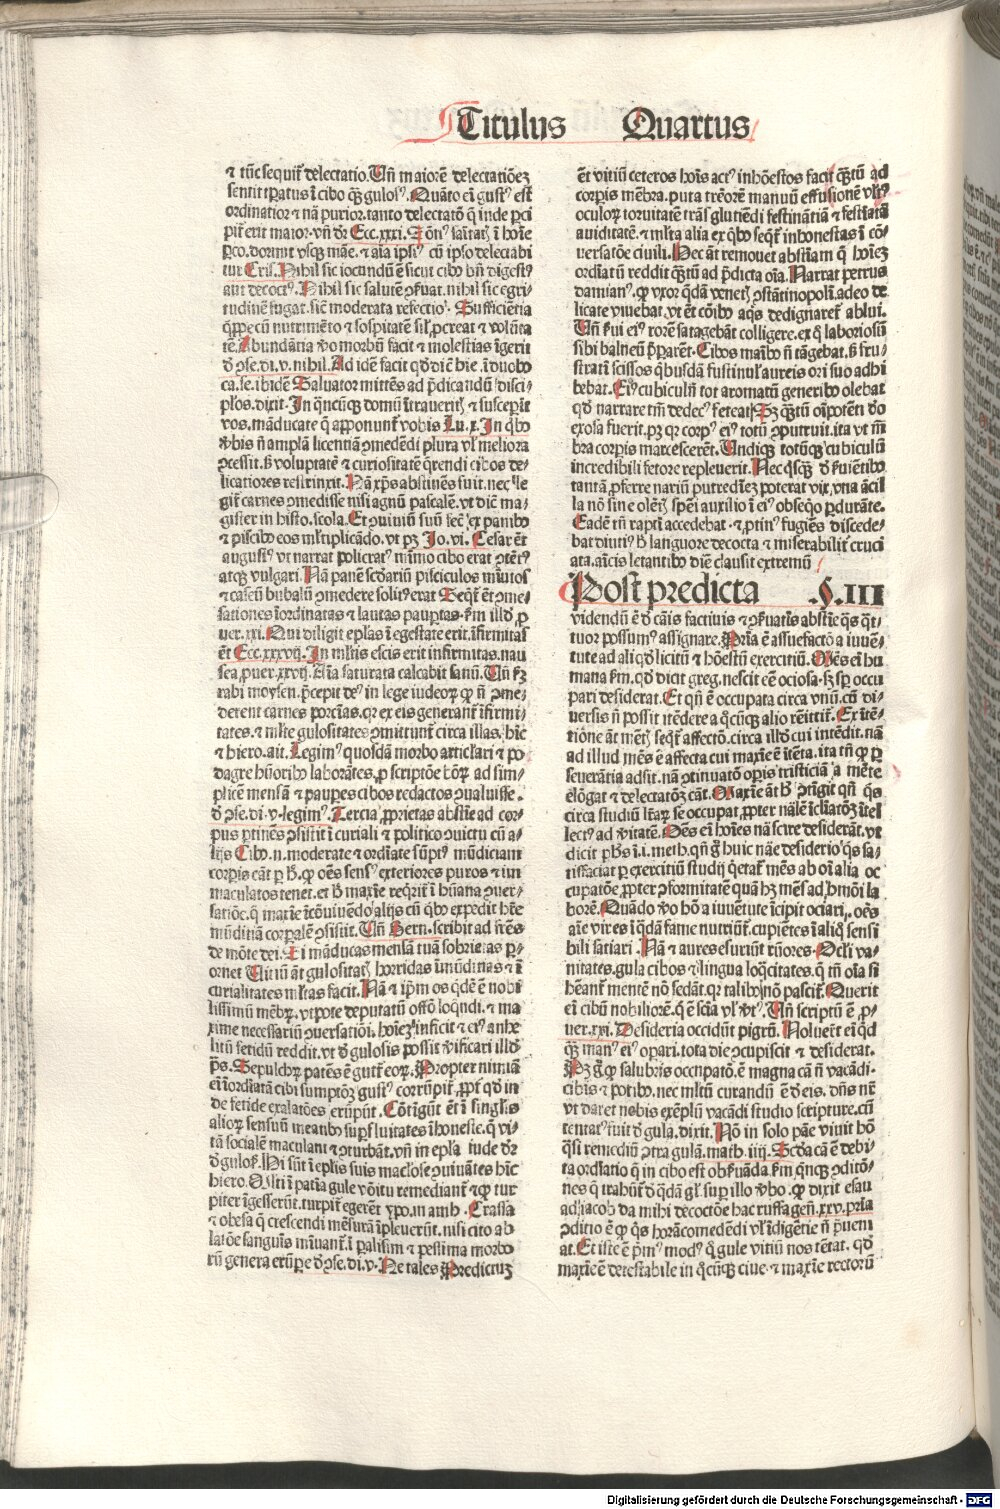 Titulus Quartus
⁊ tūc sequit̄ delectatio. Un̄ maiorē delectatiōez
sentit tp̄atus ī cibo qȝ gulosꝰ. Quāto eī gustꝰ est
ordinatior ⁊ nā purior. tanto delectatō q̄ inde ꝑci
pit̄ erit maior. vn̄ dr̄ Ecc. xxxi.
ꝑco. dormit vsqȝ māe. ⁊ aīa ipsiꝰ cū ipso delectabi
tur Cris. Nihil sic iocundū ē sicut cibꝰ bn̄ digestꝰ
aut decoctꝰ. Nihil sic salutē ɔseruat. nihil sic egri-
tudinē fugat. sic̄ moderata refectio. Sufficiētia
Abundātia v̄o morbū facit ⁊ molestias īgerit
d̄ ɔse. di. v. nihil. Ad idē facit qd̄ dic̄ hie. ī duobꝰ
ca. se. ibidē Saluator mittēs ad p̄dicandū disci-
plos. dixit. In q̄ncūqȝ domū ītraueritꝭ ⁊ susceperīt
vos. māducate q̄ apponunt̄ vobis Lu. x. In qbꝰ
v̄bis n̄ amplā licentiā ɔmedēdi plura vl̓ meliora
ɔcessit. sȝ voluptatē ⁊ curiositatē q̄rendi cibos de-
licatiores restrinxit. Nā xp̄s abstinēs fuit. nec le
git̄ carnes ɔmedisse nisi agnū pascalē. vt dic̄ ma-
gister in histo. scola. Et ɔuiuiū suū fec̄ ex panibꝰ
⁊ piscibꝰ eos ml̓tiplicādo. vt pȝ Jo. vi. Cesar et̄
augustꝰ vt narrat policratꝰ minimo cibo erat ɔtētꝰ
atqȝ vulgari. Nā panē scdariū pisciculos minutos
⁊ caseū bubalū ɔmedere solitꝰ erat Seqt̄ et̄ ɔme-
sationes īordinatas ⁊ lautas pauꝑtas. km̄ illd̓ ꝓ
uer. xxi. Qui diligit epl̓as ī egestate erit. īfirmitas
et̄ Ecc. xxxvij. In ml̓tis escis erit infirmitas. nau
sea ꝓuer. xxvij. Aīa saturata calcabit fauū. Un̄ km̄
rabi moysen. p̄cepit deꝰ in lege iudeoꝝ ꝙ n̄ ɔme-
derent carnes porcīas. qr ex eis generant̄ īfirmi-
tates. ⁊ ml̓te gulositates ɔmittunt̄ circa illas. hīc
⁊ hiero. ait. Legimꝰ quosdā morbo articl̓ari ⁊ po-
dagre hūoribꝰ laborātes. ꝓscriptōe bōꝝ ad sim-
plicē mensā ⁊ pauꝑes cibos redactos ɔualuisse.
d̄ ɔse. di. v. legimꝰ. Tercia ꝓprietas abstīe ad cor-
pus ptinēs ɔsistit ī curiali ⁊ politico ɔuictu cū a-
lijs Cibꝰ. n. moderate ⁊ ordīate sūptꝰ mūdiciam
corꝑis cāt ꝑ hͦ. ꝙ oēs sensꝰ exteriores puros ⁊ im
maculatos tenet. et hͦ maxīe reqrit̄ ī hūana ɔuer-
satiōe. q̄ maxīe ī ɔuiuēdo alijs cū qbꝰ expedit hr̄e
mūditiā corꝑalē ɔsistit. Un̄ Bern. scribit ad fr̄es
de mōte dei. Si māducas mensā tuā sobrietas ꝑ-
ornet Uitiū āt gulositatꝭ horridas īmūdicias ⁊ ī
curialitates ml̓tas facit. Nā ⁊ ip̄m os qd̄ē ē nobi
lissimū mēbꝝ. vtpote deputatū offō loqndi. ⁊ ma
xime necessariū ɔuersatiōi. hoīez īnficit ⁊ eiꝰ anhe
litū fetidū reddit. vt d̄ gulosis possit v̄ificari illd̓
ps̄. Sepulchꝝ patēs ē gutt̄ eoꝝ. Propter nimiā
eī īordīatā cibi sumptōȝ gustꝰ corrūpit̄. ꝓpt̄ qd̄ in
de fetide exalatōes erūpūt. Cōtīgūt et̄ ī singl̓is
alioꝝ sensuū meatibꝰ suꝑfluitates īhoneste. q̄ vi-
tā socialē maculant ⁊ ɔturbāt. vn̄ in epl̓a iude dr̄
d̄ gulos. Hi sūt ī epl̓is suis macl̓ose ɔuiuātes hīc
hiero. Asiti ī patīa gule vōitu remediant̄ ⁊ qꝙ tur
piter īgesserūt. turpiꝰ egerēt ypo. in amb. Crassa
⁊ obesa q̄ crescendi mēsurā īpleuerūt. nisi cito ab
latōe sanguīs minuant̄. ī palisim ⁊ pessima morbo
rū genera erūpe d̄ ɔse. di. v. Ne tales Predictuȝ
et̄ vitiū ceteros hoīs actꝰ inhōestos facit qȝtū ad
corꝑis mēbra. puta tremorē manuū effusionē
oculoꝝ toruitatē trās glutiēdi festinātiā ⁊
auiditatē. ⁊ ml̓ta alia ex qbꝰ seqt̄ inhonestas ī cō-
uersatōe ciuili. Nec āt remouet abstīam q̄ hoīez
ordīatū reddit qȝtū ad p̄dicta oīa. Narrat petrus
damianꝰ. ꝙ vxor qdā venetꝭ ɔstātinopoli. adeo de
licate viuebat. vt et̄ cōībꝰ aqs dedignaret̄ ablui.
Un̄ serui eiꝰ rorē satagebāt colligere. ex q̄ laboriosū
sibi balneū p̄pararēt. Cibos manibꝰ n̄ tāgebat. sȝ fru-
stratī scissos qbusdā fustinul̓ aureis ori suo adhi
bebat. Eiꝰ cubiculū tot aromatū generibꝰ olebat
qd̄ narrare tm̄ dedecꝰ feteat. Sȝ qȝtū oīpotēti deo
exosa fuerit. pȝ qr corpꝰ eiꝰ totū ɔputruit. ita vt m̄
bra corꝑis marcescerēt. Undiqȝ totūqȝ cubiculū
incredibili fetore repleuerit. Nec qsqȝ d̄ seruiētibꝰ
tantā ꝓferre nariū putredīez poterat vix vna ācil
la nō sine olētꝭ spēi auxilio ī eiꝰ obseqo ꝑdurāte.
Eadē tn̄ raptī accedebat. ⁊ ꝓtinꝰ fugiēs discede-
bat diutiꝰ hͦ languore decocta ⁊ miserabilit̄ cruci
ata. amicis letantibꝰ diē clausit extremū
Post predicta .§. III
videndū ē d̄ cāis factiuis ⁊ ɔseruatīs abstīe qs qt̄-
tuor possumꝰ assignare. Prīa ē assuefactō a iuuē-
tute ad aliqd̄ licitū ⁊ hōestū exercitiū. Mēs eī hu
mana km̄. qd̄ dicit greg. nescit eē ociosa. sȝ sꝑ occu
pari desiderat. Et qn̄ ē occupata circa vnū. cū di-
uersis n̄ possit ītēdere a qcūqȝ alio remittit̄. Ex ītē-
tione āt mētꝭ seqt̄ affectō. circa illd̓ cui intēdit. nā
ad illud mēs ē affecta cui maxīe ē ītēta. ita tn̄ ꝙ ꝑ
seuerātia adsit. nā ɔtinuatō oꝑis tristiciā a mēte
elōgat ⁊ delectatōȝ cāt. Maxīe āt hͦ ɔtigit qn̄ qs
circa studiū lr̄aꝝ se occupat. ꝓpter nālē īcliatōȝ ītel
lectꝰ ad v̄itatē. Oēs eī hoīes nā scire desiderāt. vt
dicit phs̄ ī. i. meth. qn̄ g̊ huic nāe desiderio qs sa-
tisfaciat ꝑ exercitiū studij qetat̄ mēs ab oī alia oc
cupatōe. ꝓpter ɔformitatē quā hȝ mēs ad hmōi la
borē. Quādo v̄o hō a iuuētute īcipit ociari. oēs
aīe vires ī qdā fame nutriūt̄. cupiētes ī aliq̄ sensi
bili satiari. Nā ⁊ aures esuriūt rūores. Ocl̓i va-
nitates. gula cibos ⁊ lingua loqcitates. q̄ tn̄ oīa si
hēant̄ mentē nō sedāt. qr talibꝰ nō pascit̄. Querit
eī cibū nobiliorē. q̄ ē scīa vl̓ v̓tꝰ. Un̄ scriptū ē ꝓ-
uer. xxi. Desideria occidūt pigrū. Noluert̄ eī qd̄
qȝ manꝰ eiꝰ oꝑari. tota die ɔcupiscit ⁊ desiderat.
Pȝ g̊ ꝙ salubris occupatō. ē magna cā n̄ vacādi
cibis ⁊ potibꝰ. nec ml̓tū curandū ē d̄ eis. dn̄s nr̄
vt daret nobis exēplū vacādi studio scripture. cū
tentatꝰ fuit d̄ gula. dixit. Nō in solo pāe viuit hō
qsi remediū ɔtra gulā. math. iiij. Scd̄a cā ē debi-
ta ordīatio q̄ in cibo est obseruāda. km̄ qnqȝ ɔditō-
nes q̄ trahūt̄ d̄ qdā gl̓ suꝑ illo v̓bo. ꝙ dixit esau
ad iacob da mihi decoctōe hac ruffa gen̄. xxv. prīa
ɔditio ē ꝙ qs horā comedēdi vl̓ īdigētie n̄ p̄ueni
at. Et iste ē p̄mꝰ modꝰ q̊ gule vitiū nos tētat. qd̄
maxīe ē detestabile in qcūqȝ ciue. ⁊ maxīe rectorū
Digitalisierung gefördert durch die Deutsche Forschungsgemeinschaft - DFG